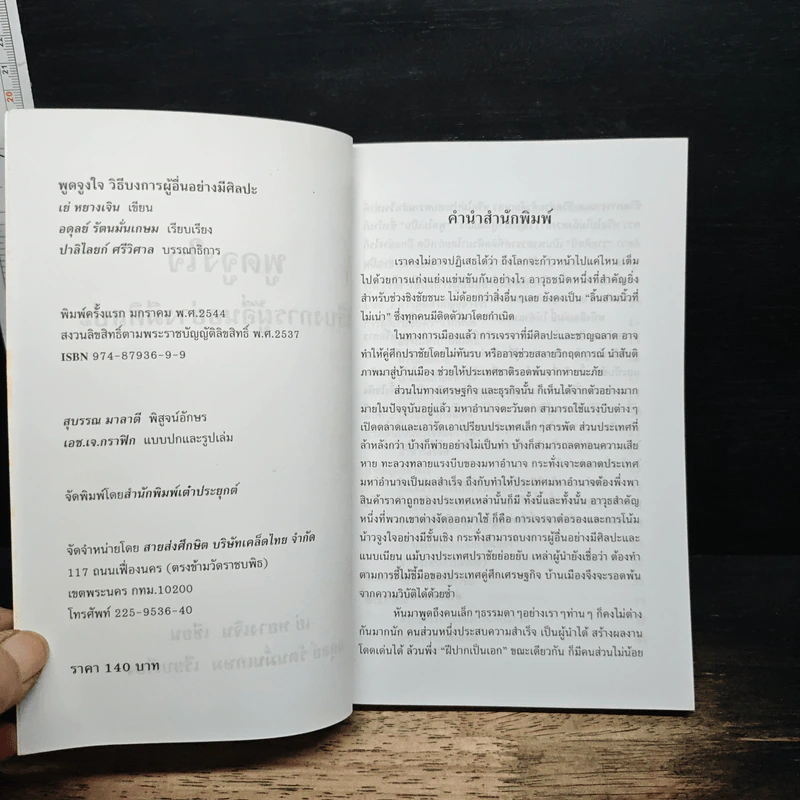 พูดจูงใจ วิธีบงการผู้อื่นอย่างมีศิลปะ
เย่ หยางเจิน เขียน
อดุลย์ รัตนมั่นเกษม เรียบเรียง
ปาลิไลยก์ ศรีวิศาล บรรณาธิการ
พิมพ์ครั้งแรก มกราคม พ.ศ.2544
สงวนลิขสิทธิ์ตามพระราชบัญญัติลิขสิทธิ์ พ.ศ.2537
ISBN 974-87936-9-9
สุบรรณ มาลาตี พิสูจน์อักษร
เอช.เจ.กราฟิก แบบปกและรูปเล่ม
จัดพิมพ์โดยสำนักพิมพ์เต๋าประยุกต์
จัดจำหน่ายโดย สายส่งศึกษิต บริษัทเคล็ดไทย จำกัด
117 ถนนเฟื่องนคร (ตรงข้ามวัดราชบพิธ)
เขตพระนคร กทม.10200
โทรศัพท์ 225-9536-40
ราคา 140 บาท
คำนำสำนักพิมพ์
เราคงไม่อาจปฏิเสธได้ว่า ถึงโลกจะก้าวหน้าไปแค่ไหน เต็ม
ไปด้วยการแก่งแย่งแข่งขันกันอย่างไร อาวุธชนิดหนึ่งที่สำคัญยิ่ง
สำหรับช่วงชิงชัยชนะ ไม่ด้อยกว่าสิ่งอื่นๆเลย ยังคงเป็น "ลิ้นสามนิ้วที่
ไม่เน่า" ซึ่งทุกคนมีติดตัวมาโดยกำเนิด
ในทางการเมืองแล้ว การเจรจาที่มีศิลปะและชาญฉลาด อาจ
ทำให้คู่ศึกปราชัยโดยไม่ทันรบ หรืออาจช่วยสลายวิกฤตการณ์ นำสันติ
ภาพมาสู่บ้านเมือง ช่วยให้ประเทศชาติรอดพ้นจากหายนะภัย
ส่วนในทางเศรษฐกิจ และธุรกิจนั้น ก็เห็นได้จากตัวอย่างมาก
มายในปัจจุบันอยู่แล้ว มหาอำนาจตะวันตก สามารถใช้แรงบีบต่างๆ
เปิดตลาดและเอารัดเอาเปรียบประเทศเล็กๆสารพัด ส่วนประเทศที่
ล้าหลังกว่า บ้างก็พ่ายอย่างไม่เป็นท่า บ้างก็สามารถลดทอนความเสีย
หาย ทะลวงทลายแรงบีบของมหาอำนาจ กระทั่งเจาะตลาดประเทศ
มหาอำนาจเป็นผลสำเร็จ ถึงกับทำให้ประเทศมหาอำนาจต้องพึ่งพา
สินค้าราคาถูกของประเทศเหล่านั้นก็มี ทั้งนี้และทั้งนั้น อาวุธสำคัญ
หนึ่งที่พวกเขาต่างงัดออกมาใช้ ก็คือ การเจรจาต่อรองและการโน้ม
น้าวจูงใจอย่างมีชั้นเชิง กระทั่งสามารถบงการผู้อื่นอย่างมีศิลปะและ
แนบเนียน แม้บางประเทศปราชัยย่อยยับ เหล่าผู้นำยังเชื่อว่า ต้องทำ
ตามการชี้ไม้ชี้มือของประเทศคู่ศึกเศรษฐกิจ บ้านเมืองจึงจะรอดพ้น
จากความวิบัติได้ด้วยซ้ำ
หันมาพูดถึงคนเล็กๆธรรมดาๆอย่างเราๆท่านๆ ก็คงไม่ต่าง
กันมากนัก คนส่วนหนึ่งประสบความสำเร็จ เป็นผู้นำได้ สร้างผลงาน
โดดเด่นได้ ล้วนพึ่ง "ฝีปากเป็นเอก" ขณะเดียวกัน ก็มีคนส่วนไม่น้อย